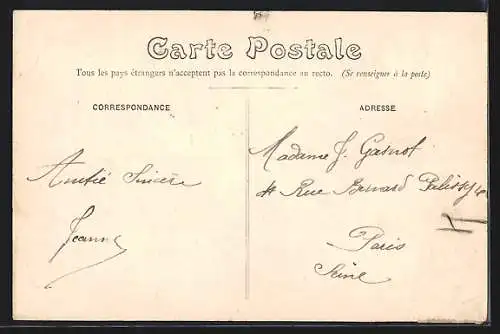 Carte Postale
Tous les pays étrangers n'acceptent pas la correspondance au recto. (Se renseigner à la poste)
CORRESPONDANCE
ADRESSE
Amitié Sincère
Jeanne
Madame J. Gasnot
4 Rue Bernard Palissy
Paris
Seine